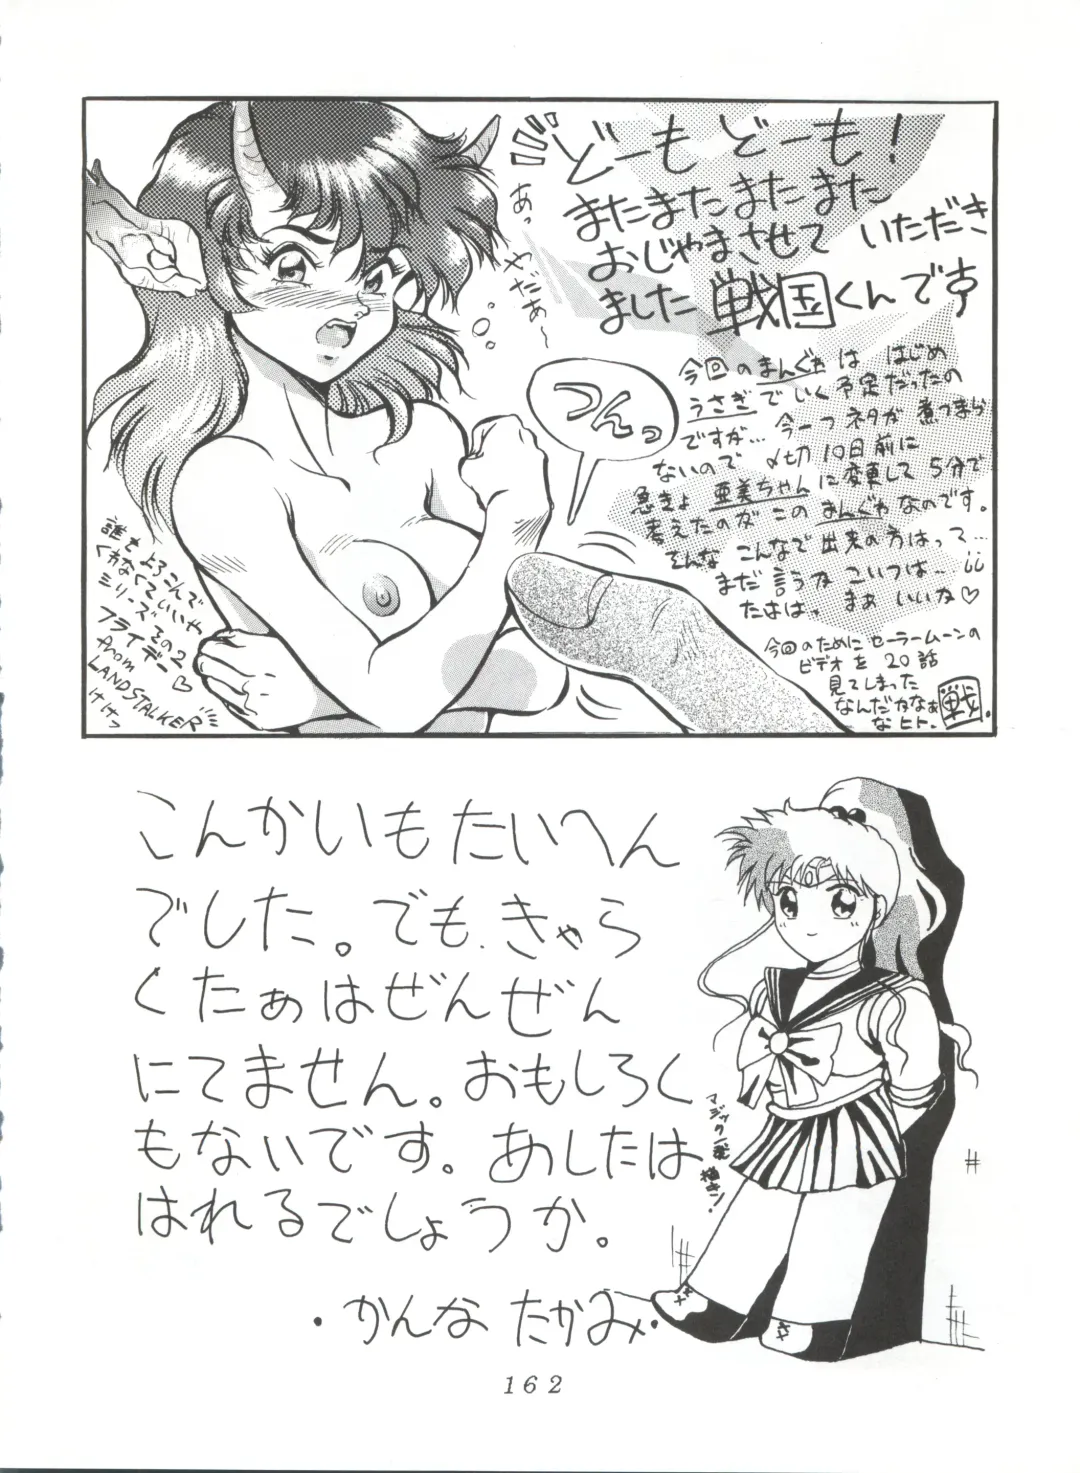 どーもどーも!
またまたまたまた
おじゃまさせて いただき
ました 戦国くんです
あっ
やだぁ〜
つんっ
今回のまんぐゎは はじめ
うさぎでいく予定だったの
ですが… 今一つネタが煮つまら
ないので 〆切10日前に
急きょ 亜美ちゃんに変更して 5分で
考えたのが このまんぐゎなのです。
そんな こんなで 出来の方はって…
まだ言うか こいつは…
たははっ まぁ いいか♡
今回のために セーラームーンの
ビデオを 20話
見てしまった
なんだかなぁ
なヒト.
戦.
誰もよろこんで
くんなくていいや
シリーズ その2
フライデー♡
from
LANDSTALKER
けけっ
こんかいもたいへん
でした。でも、きゃら
くたぁはぜんぜん
にてません。おもしろく
もないです。あしたは
はれるでしょうか。
・かんな たかみ・
マジック一発
描き!
162